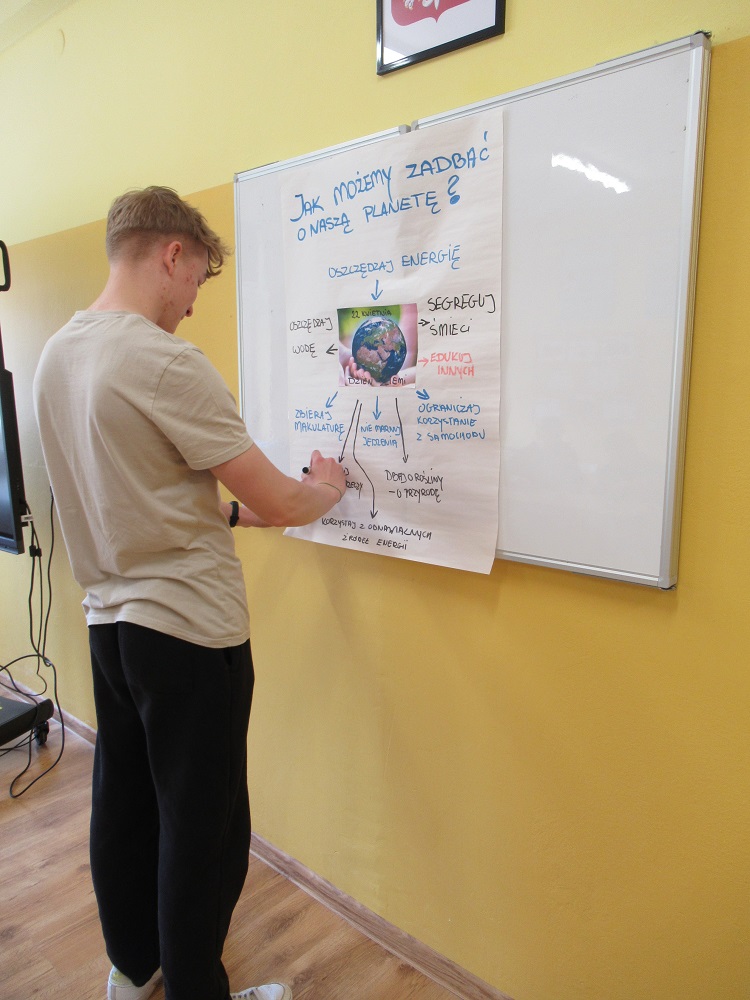 JAK MOŻEMY ZADBAĆ
O NASZĄ PLANETĘ?
OSZCZĘDZAJ ENERGIĘ
OSZCZĘDZAJ
WODĘ
22 KWIETNIA
DZIEŃ ZIEMI
SEGREGUJ
ŚMIECI
EDUKUJ
INNYCH
ZBIERAJ
MAKULATURĘ
NIE MARNUJ
JEDZENIA
OGRANICZAJ
KORZYSTANIE
Z SAMOCHODU
DBAJ O ROŚLINY
- O PRZYRODĘ
KORZYSTAJ Z ODNAWIALNYCH
ŹRÓDEŁ ENERGII